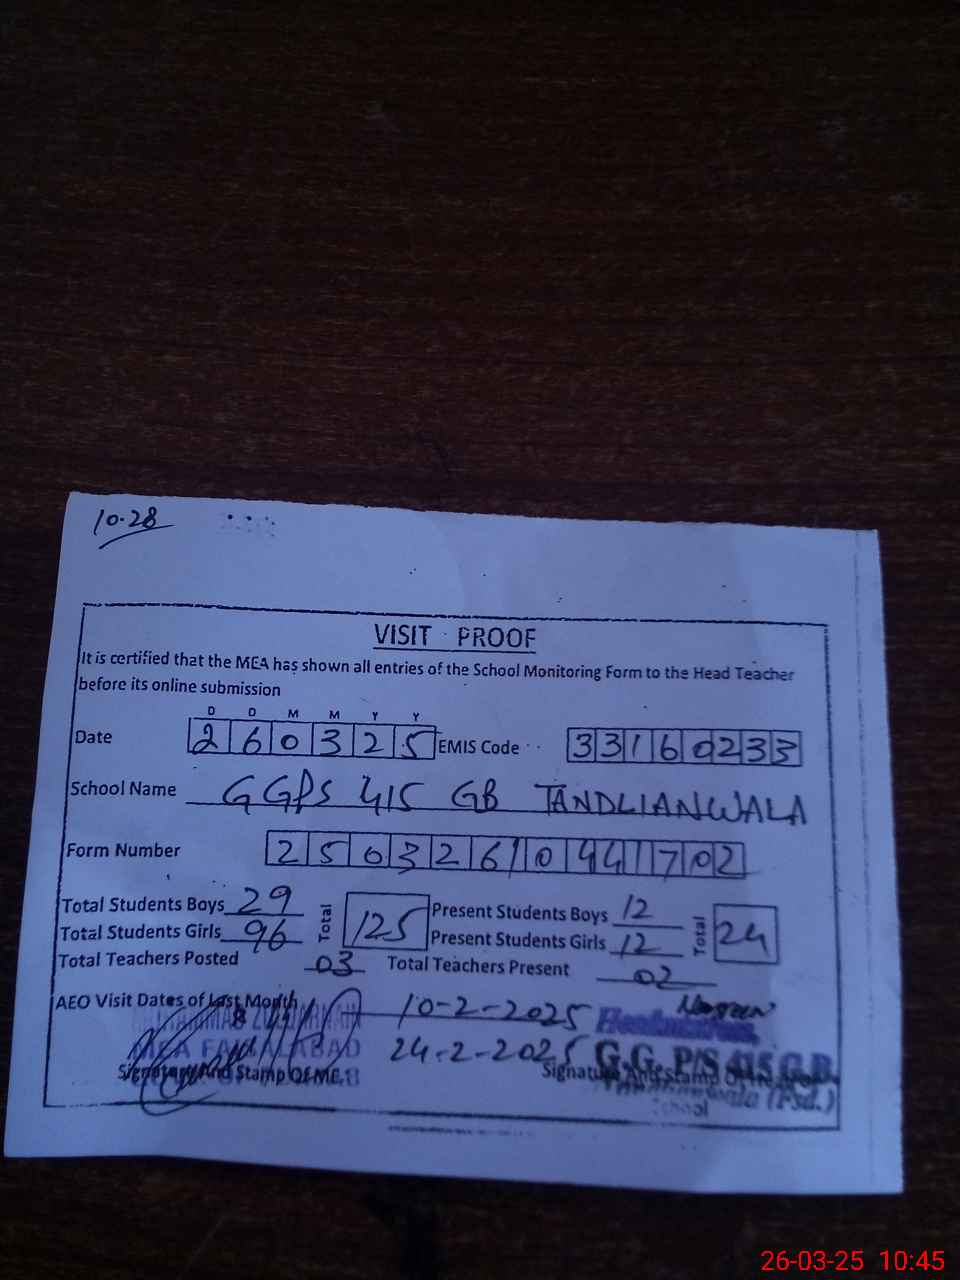 10.28
VISIT PROOF
It is certified that the MEA has shown all entries of the School Monitoring Form to the Head Teacher
before its online submission
D D M M Y Y
Date 260325 EMIS Code 33160233
School Name GGPS 415 GB TANDLIANWALA
Form Number 25032610441702
Total Students Boys 29 Total 125 Present Students Boys 12 Total 24
Total Students Girls 96 Present Students Girls 12
Total Teachers Posted 03 Total Teachers Present 02
AEO Visit Dates of Last Month 10-2-2025
24-2-2025
MEA FAISALABAD
Signature And Stamp Of MEA
Headmistress
G.G.P/S 415 G.B.
(Fsd.)
Signature And Stamp Of
School
26-03-25 10:45